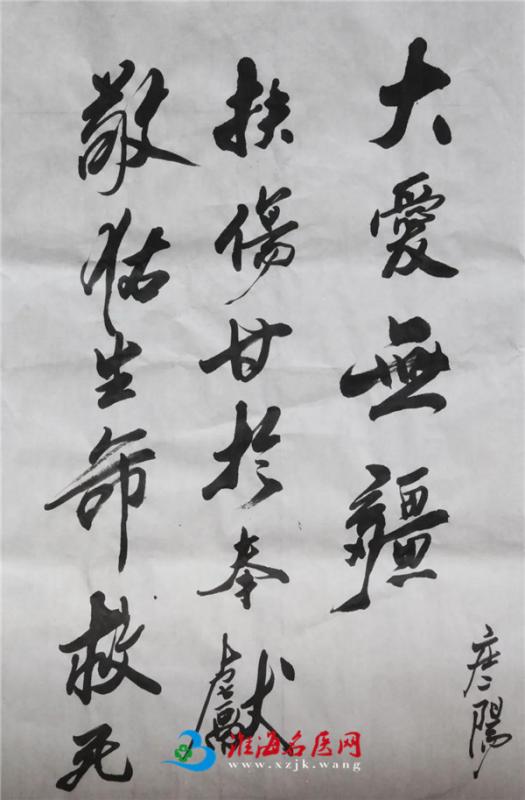 敬祐生命救死
扶傷甘於奉獻
大愛無疆
陽
淮海名医网
www.xzjk.wang